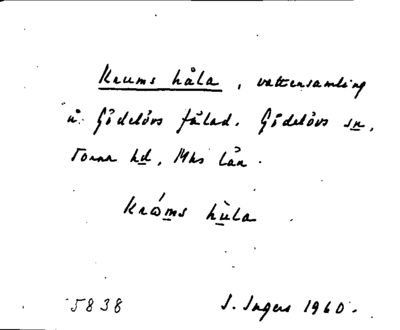 Krums håla, vattensamling
å Gödelövs fälad. Gödelövs sn,
Torna hd, Mhs län.
krǿms hùla
5838 I. Ingers 1960.